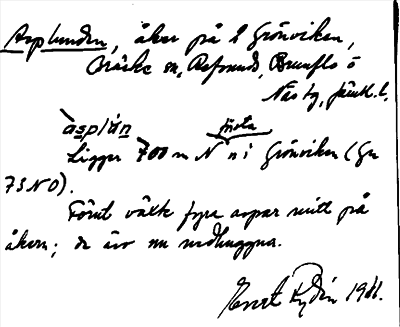 Asplunden, åker på 2 Grönviken,
Bräcke sn, Refsunds, Brunflo o
Näs tg, Jämtl. l.
`asplún
första
Ligger 700 m N n i Grönviken (Gn
7 S N O).
Förut växte fyra aspar mitt på
åkern; de äro nu nedhuggna.
Ernst Rydén 1911.